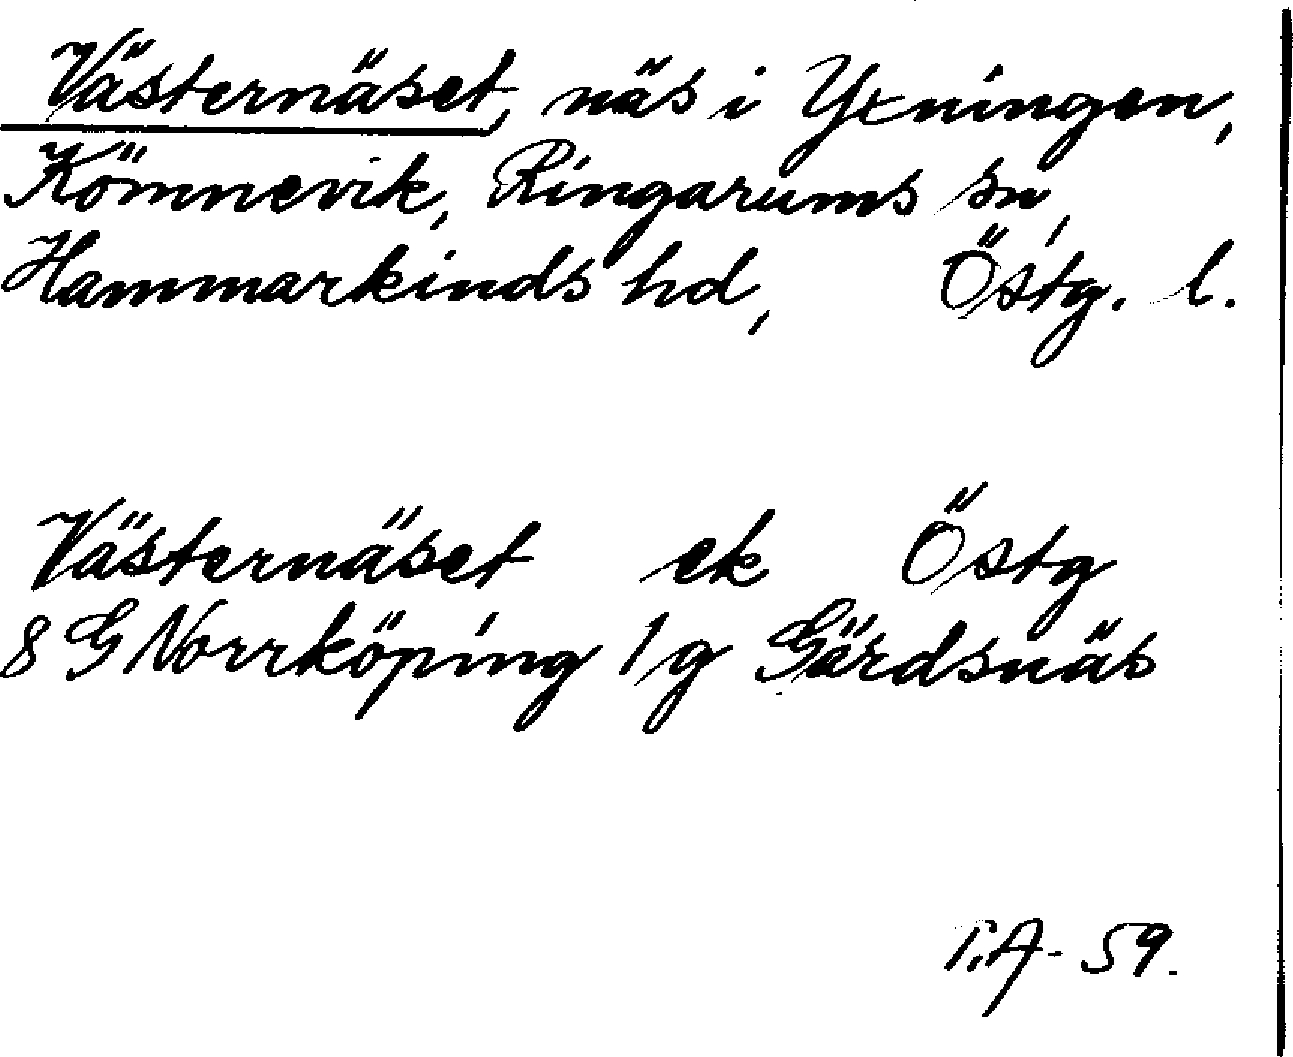 Västernäset, näs i Yxningen,
Kömnevik, Ringarums sn,
Hammarkinds hd, Östg. l.
Västernäset ek Östg
8 G Norrköping 1 g Gärdsnäs
T.A- 59.